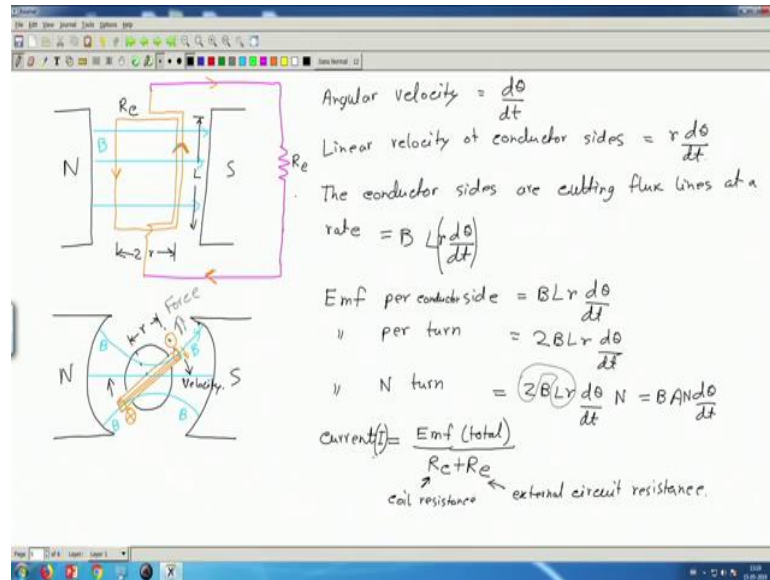 File Edit View Journal Tools Options Help
Rc
B
N
S
L
Re
2 r
Force
r
B
B
N
S
Velocity.
B
B
Angular velocity = dθ/dt
Linear velocity of conductor sides = r dθ/dt
The conductor sides are cutting flux lines at a
rate = B L(r dθ/dt)
Emf per conductor side = BLr dθ/dt
" per turn = 2BLr dθ/dt
" N turn = 2BLr dθ/dt N = BAN dθ/dt
current(I) = Emf (total)
Rc+Re
coil resistance
external circuit resistance.
Page 1 of 6 Layer: Layer 1